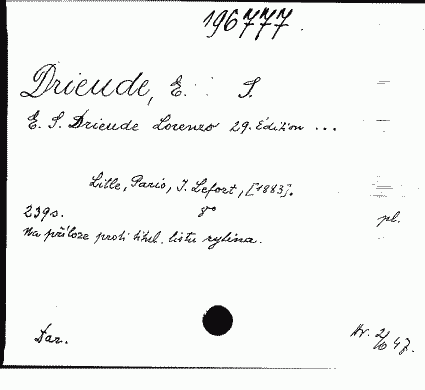 196777.
Drieude, E. S.
E. S. Drieude Lorenzo 29. Édition ...
Lille, Paris, J. Lefort, [1883].
239s. 8° pl.
Na příloze proti titul. listu rytina.
Dar. Nr. 2/6 47.